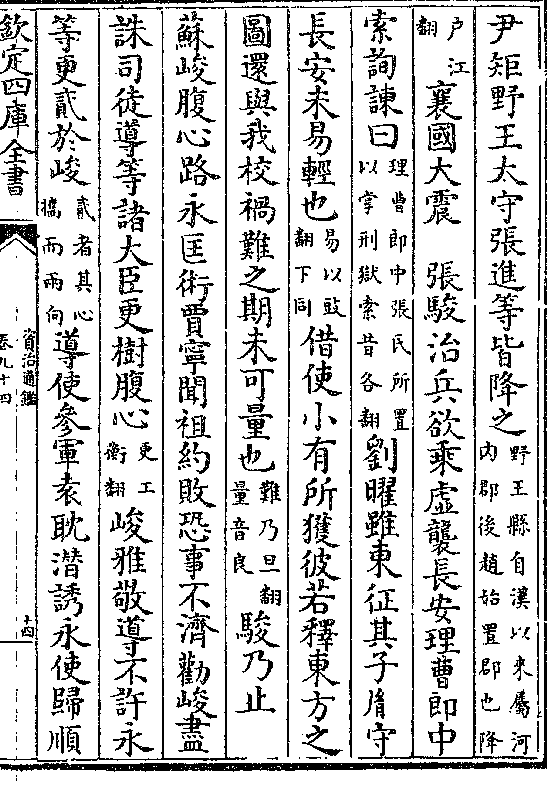 尹矩野王太守張進等皆降之野王縣自漢以來屬河内郡後趙始置郡也降
户江翻襄國大震　張駿治兵欲乘虛襲長安理曹郎中
索詢諫曰理曹郎中張氏所置以掌刑獄索昔各翻劉曜雖東征其子胤守
長安未易輕也易以豉翻下同借使小有所獲彼若釋東方之
圖還與我校禍難之期未可量也難乃旦翻量音良駿乃止
蘇峻腹心路永匡術賈寧聞祖約敗恐事不濟勸峻盡
誅司徒導等諸大臣更樹腹心更工衡翻峻雅敬導不許永
等更貳於峻貳者其心攜而兩向導使參軍袁耽潛誘永使歸順
欽定四庫全書
資治通鑑
卷九十四
十四